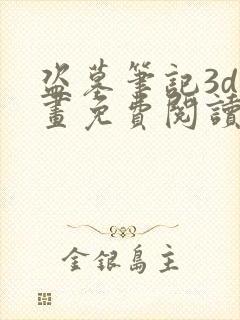 盜墓筆記3d
畫免費閱讀
金銀島主